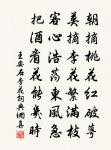 朝摘桃花紅破萼
暮摘李花繁滿枝
客心浩蕩東風急
把酒看花能幾時
王安石李花詞典網書